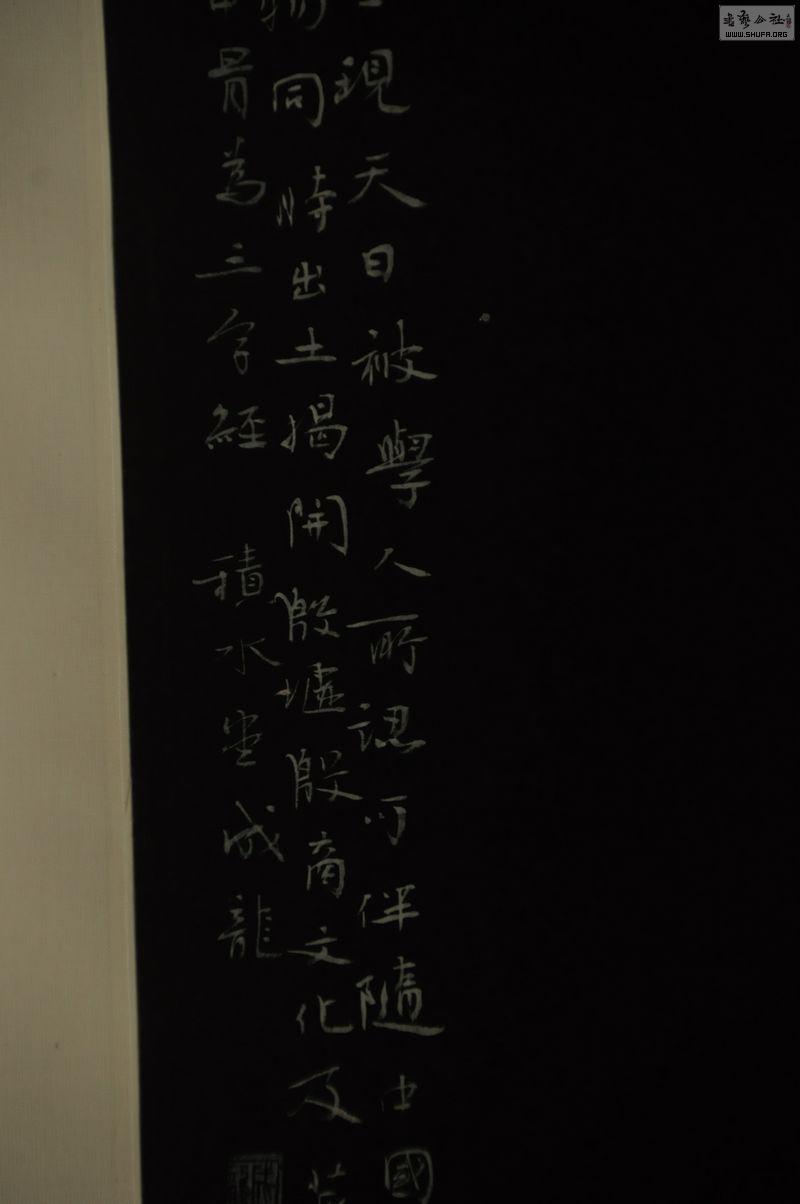 現天日被學人所認可伴隨中國
物同時出土揭開殷墟殷商文化及
甲骨為三字經 積水堂成龍
書藝公社
WWW.SHUFA.ORG